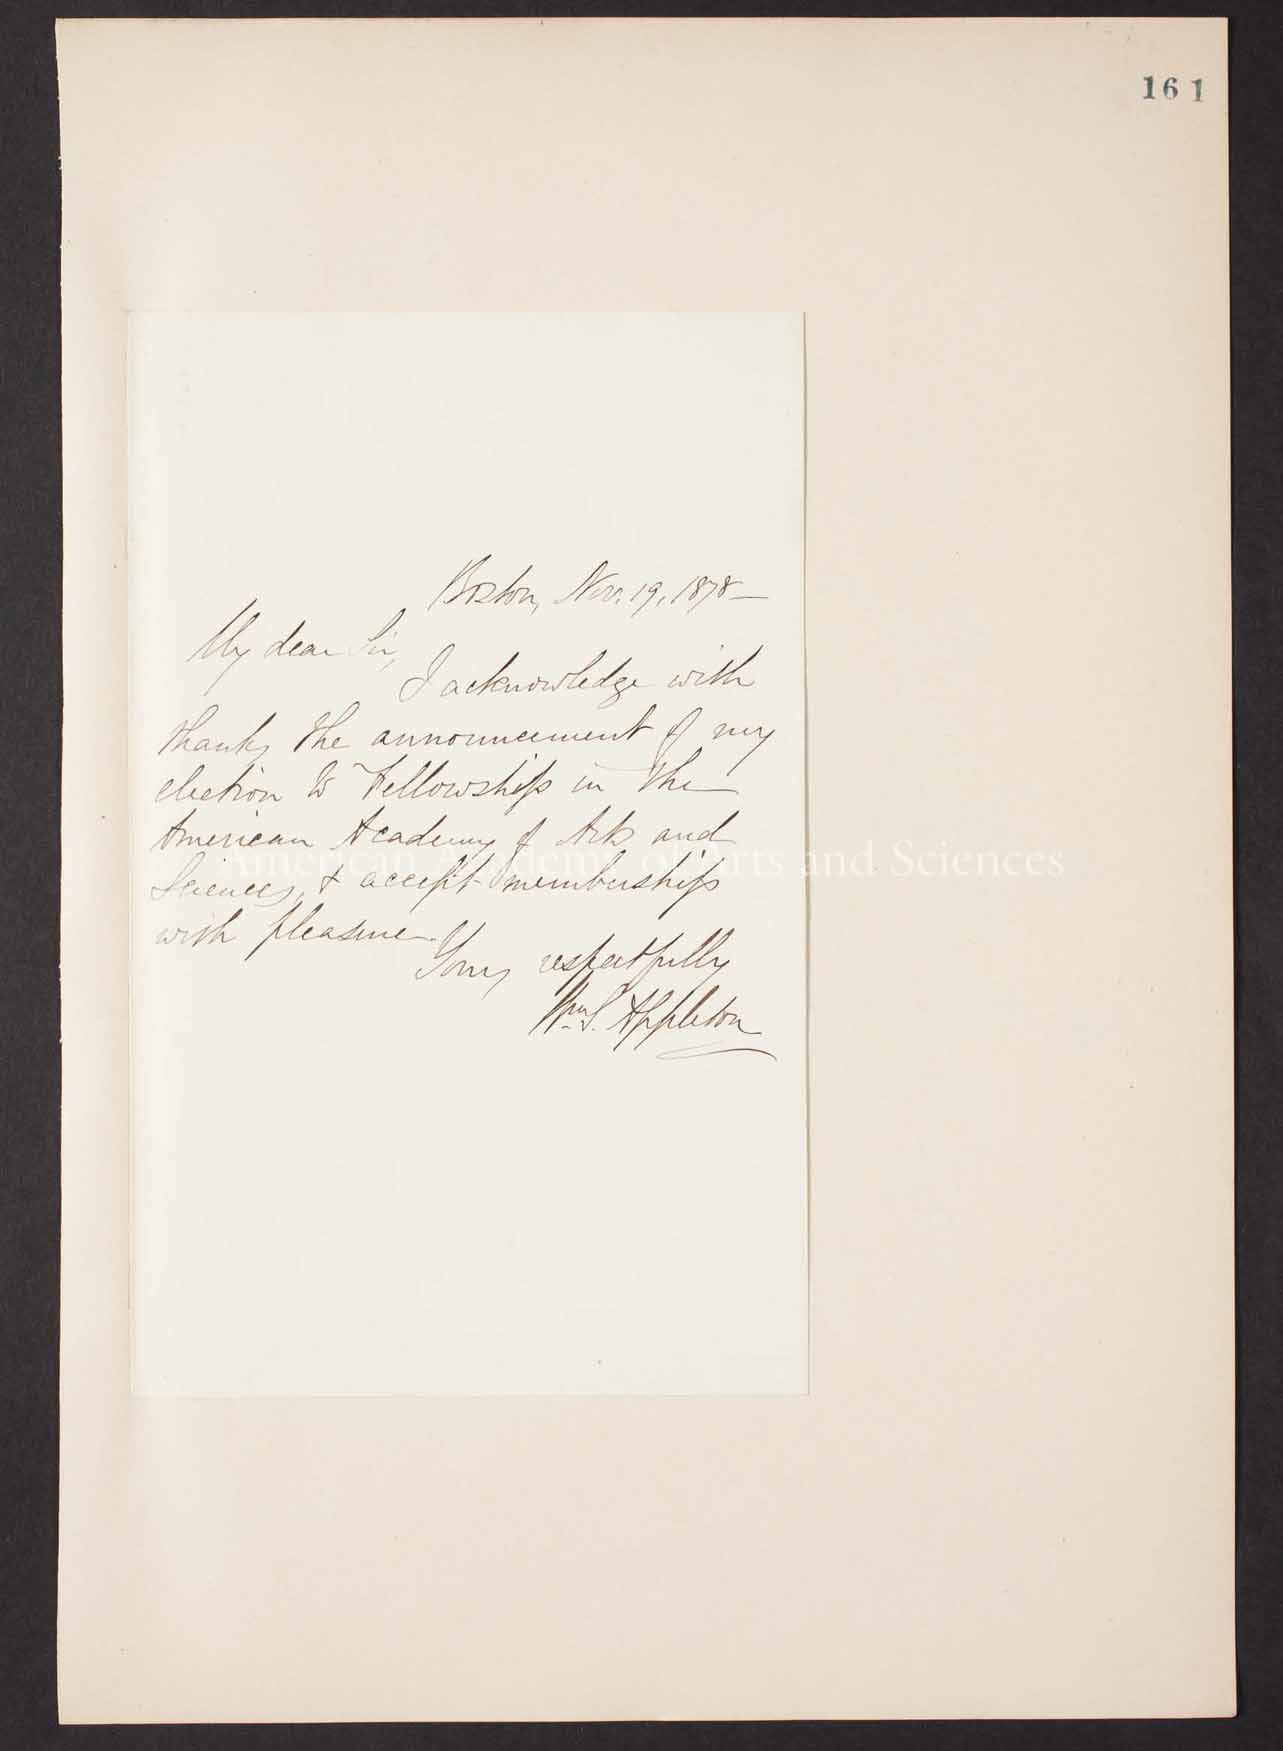 161
Boston, Nov. 19, 1878—
My dear Sir,
I acknowledge with
thanks the announcement of my
election to Fellowship in the
American Academy of Arts and
Sciences, & accept membership
with pleasure.
Yours respectfully
Wm. S. Appleton
American Academy of Arts and Sciences